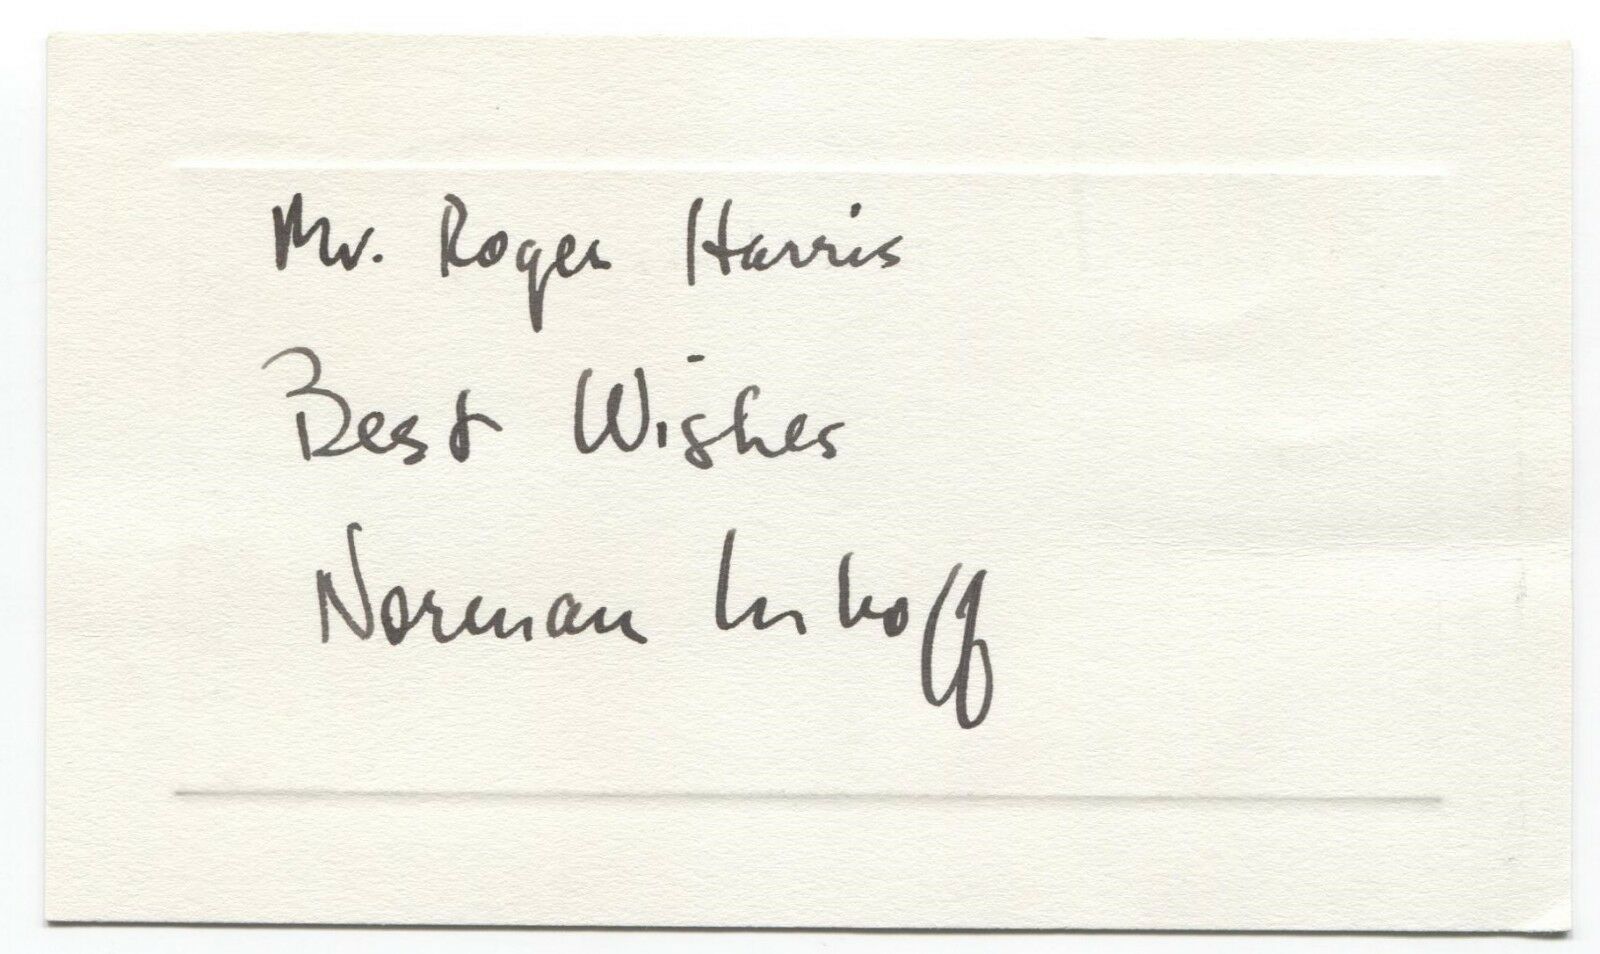 Mr. Roger Harris
Best Wishes
Norman Imhoff